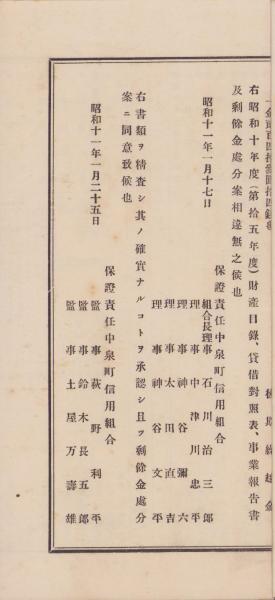 右昭和十年度(第拾五年度)財産目錄、貸借對照表、事業報告書
及剰餘金處分案相違無之候也
昭和十一年一月十七日
保證責任中泉町信用組合
組合長理事 石川治三郎
理事 中津川忠平
理事 神谷彌六
理事 太田直吉
理事 神谷文平
右書類ヲ精査シ其ノ確實ナルコトヲ承認シ且ツ剰餘金處分
案ニ同意致候也
昭和十一年一月二十五日
保證責任中泉町信用組合
監事 萩野利平
監事 鈴木長五郎
監事 土屋万壽雄